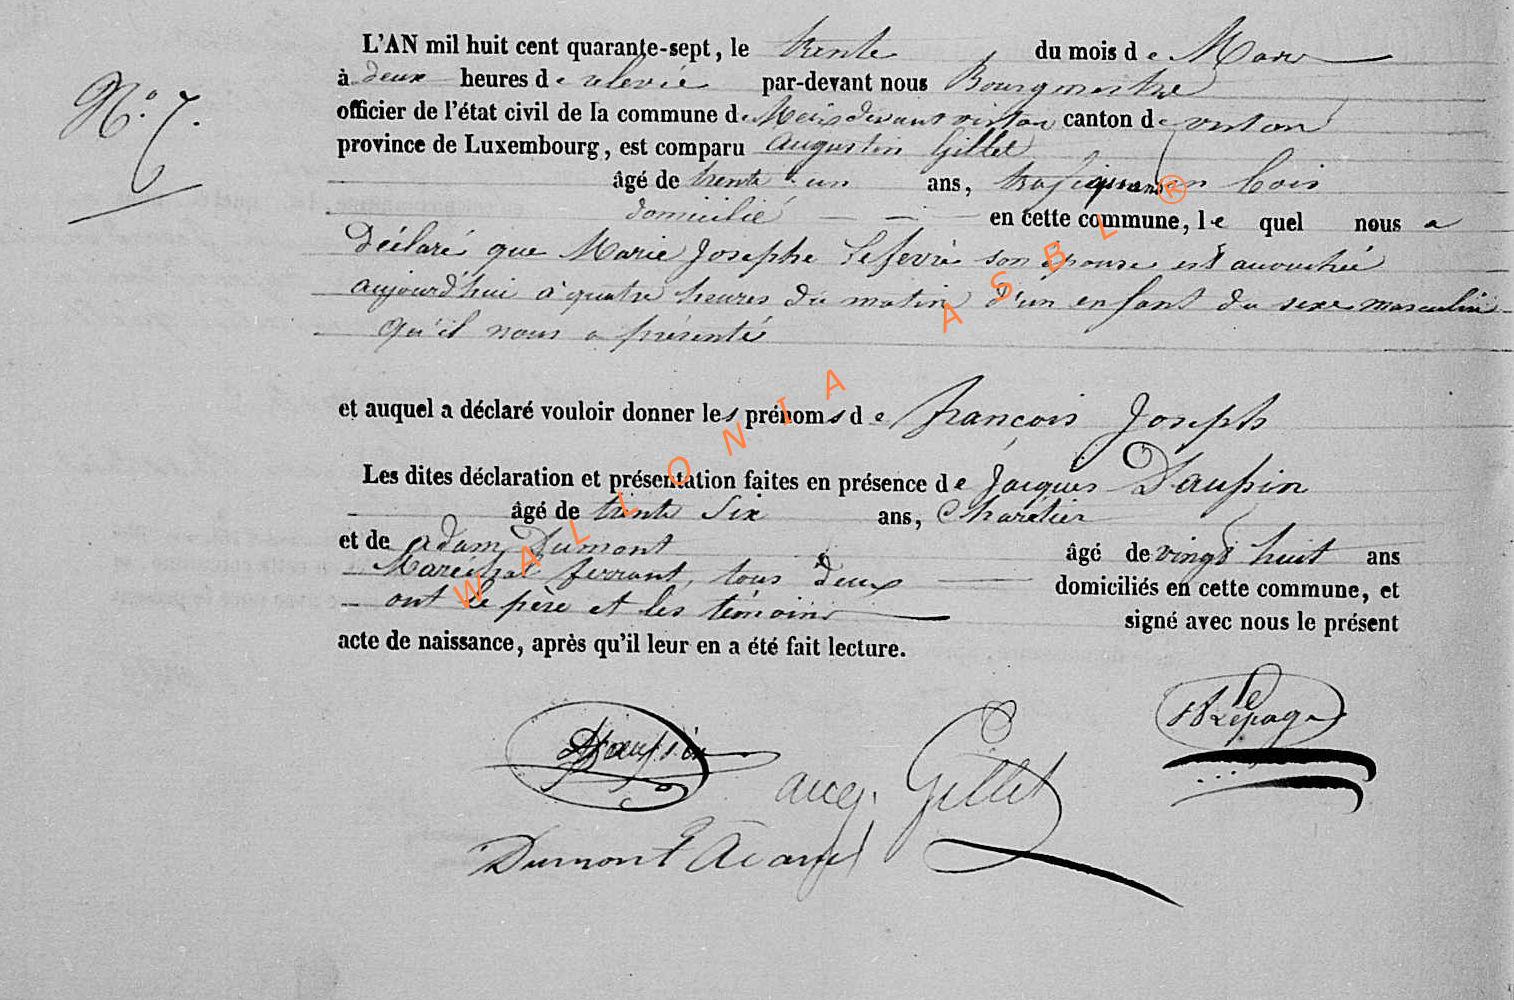 L'AN mil huit cent quarante-sept, le trente du mois de Mars
N.° 7.
à deux heures de relevée par-devant nous Bourgmestre
officier de l'état civil de la commune de Meix devant virton canton de virton
province de Luxembourg, est comparu Augustin Gillet
âgé de trente un ans, trafiquant en bois
domicilié en cette commune, le quel nous a
Déclaré que Marie Josephe Lefevre son épouse est accouchée
aujourd'hui à quatre heures du matin d'un enfant du sexe masculin
qu'il nous a présenté
et auquel a déclaré vouloir donner les prénoms de françois Joseph
Les dites déclaration et présentation faites en présence de Jacques Daussin
âgé de trente Six ans, Charetier
et de adam Dumont âgé de vingt huit ans
Maréchal ferrant, tous deux domiciliés en cette commune, et
ont le père et les témoins signé avec nous le présent
acte de naissance, après qu'il leur en a été fait lecture.
Lepage
aug. Gillet
Dumont Adam
WALLONIA ASBL ®